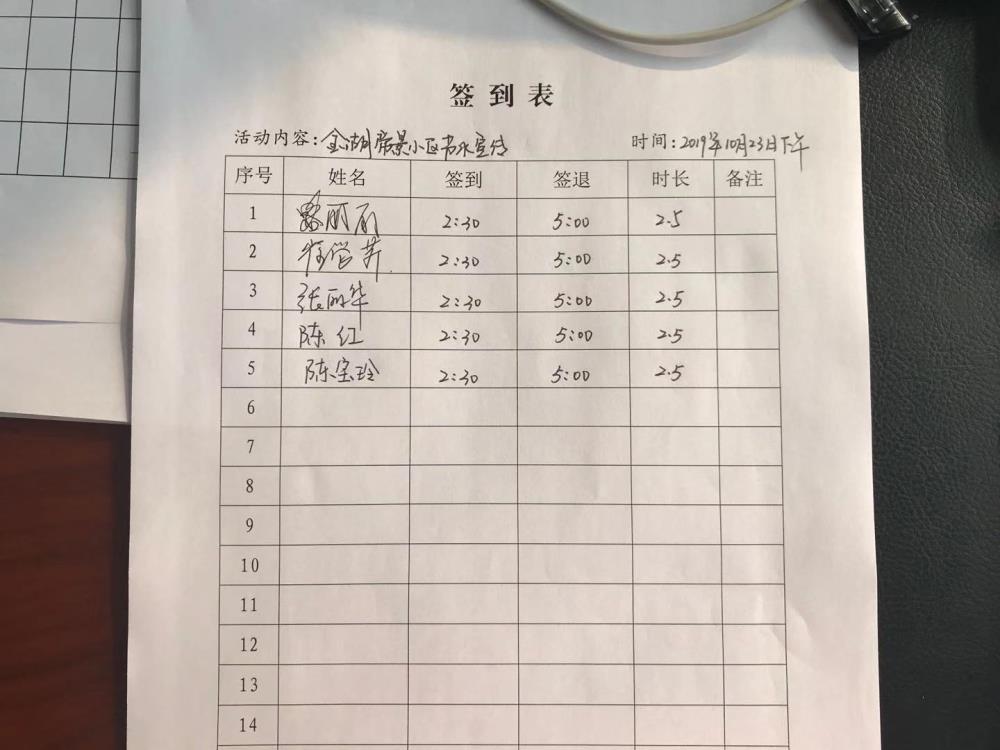 签到表
活动内容:金湖帝景小区节水宣传
时间:2019年10月23日下午
序号 姓名 签到 签退 时长 备注
1 丽丽 2:30 5:00 2.5
2 2:30 5:00 2.5
3 张丽华 2:30 5:00 2.5
4 陈红 2:30 5:00 2.5
5 陈宝玲 2:30 5:00 2.5
6
7
8
9
10
11
12
13
14